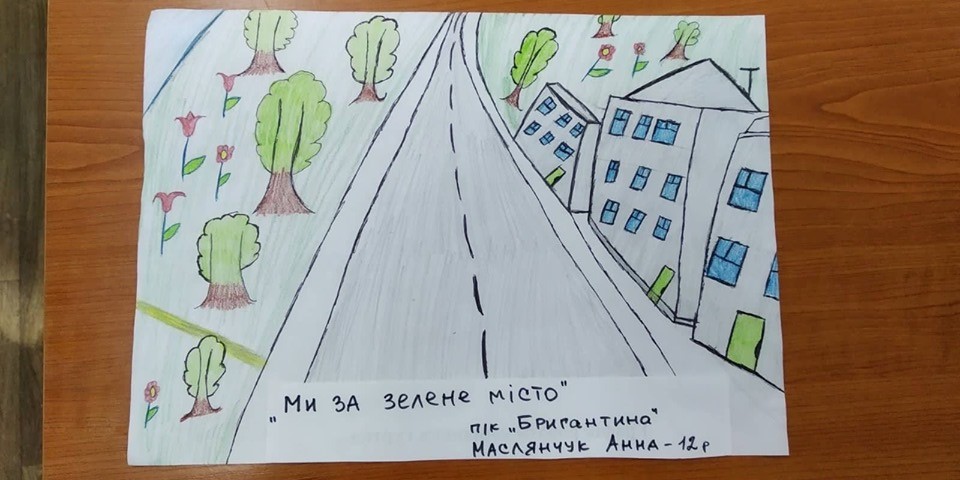 „Ми за зелене місто"
п/к „Бригантина"
Маслянчук Анна - 12 р